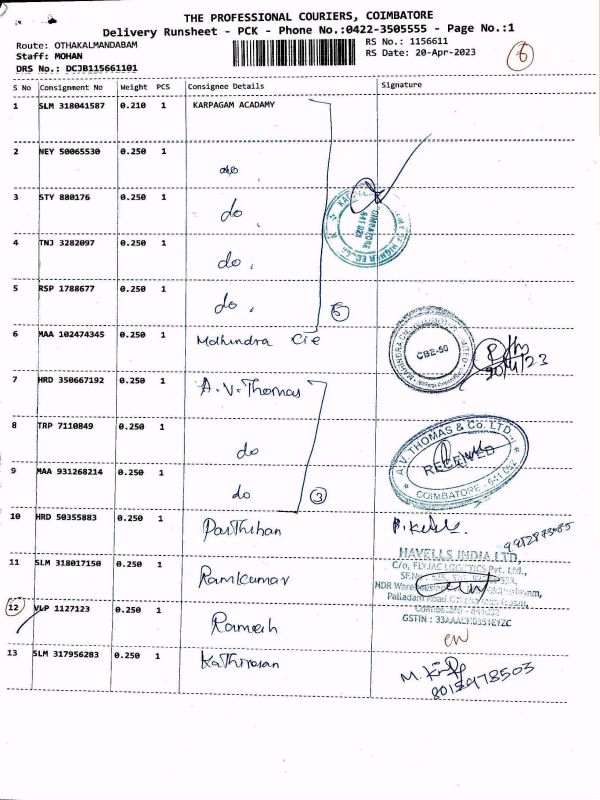 THE PROFESSIONAL COURIERS, COIMBATORE
Delivery Runsheet - PCK - Phone No.:0422-3505555 - Page No.:1
Route: OTHAKALMANDABAM
Staff: MOHAN
DRS No.: DCJB115661101
RS No.: 1156611
RS Date: 20-Apr-2023
6
S No Consignment No Weight PCS Consignee Details Signature
1 SLM 318041587 0.210 1 KARPAGAM ACADAMY
2 NEY 50065530 0.250 1 do
3 STY 880176 0.250 1 do
4 TNJ 3282097 0.250 1 do
5 RSP 1788677 0.250 1 do 5
COIMBATORE
641 021
6 MAA 102474345 0.250 1 Mahindra Cie
CBE-50
20/4/23
7 HRD 350667192 0.250 1 A.V.Thomas
8 TRP 7110849 0.250 1 do
9 MAA 931268214 0.250 1 do 3
A.V. THOMAS & Co. LTD.,
RECEIVED
COIMBATORE - 641 052
10 HRD 50355883 0.250 1 Parthiban
HAVELLS INDIA LTD,
C/o, FLYJAC LOGISTICS Pvt. Ltd.,
11 SLM 318017150 0.250 1 Ramkumar
12 VLP 1127123 0.250 1 Ramesh
13 SLM 317956283 0.250 1 Kathiresan
8015978503